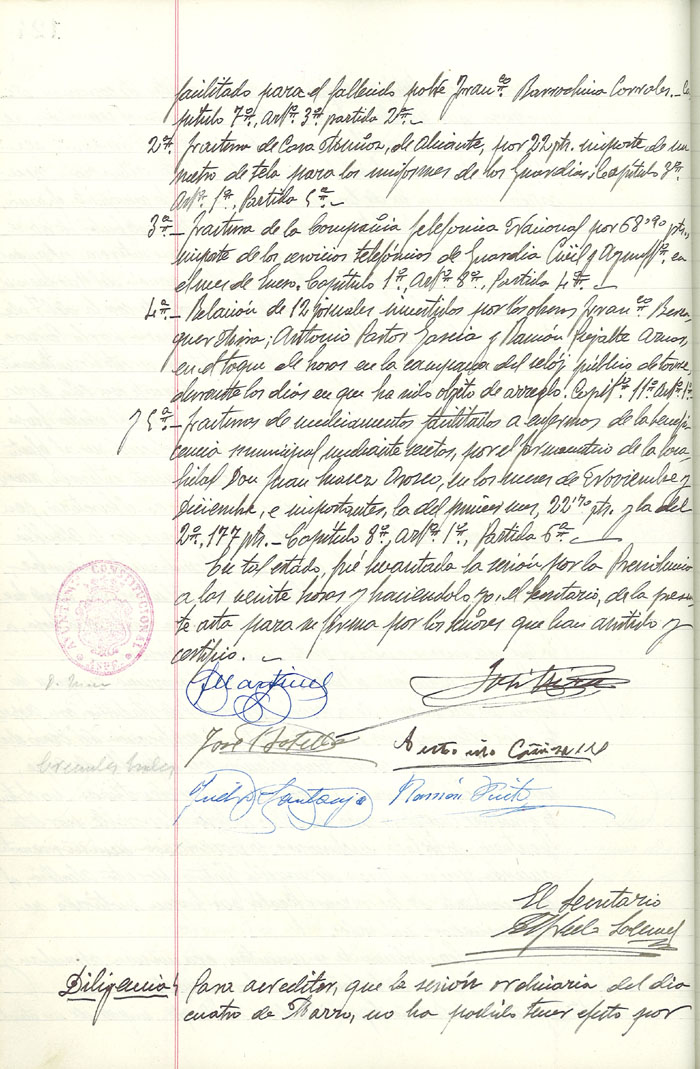 facilitado para el fallecido pobre Franco Barrachina Corrales.- Ca
pítulo 7º, artº 3º partida 2ª.-
2ª.- factura de Casa de Alicante, por 22 pts. importe de un
metro de tela para los uniformes de los Guardias. Capítulo 3º.
Artº. 1º, Partida 5ª.-
3ª.- factura de la Compañía telefónica Nacional por 68'90 pts.,
importe de los servicios telefónicos de Guardia Civil y Ayuntº, en
el mes de Enero. Capítulo 1º, Artº 8º, Partida 4ª.-
4ª.- Relación de 12 jornales invertidos por los obreros Franco
Antonio Pastor García y Ramón Aznar,
en el toque de horas en la campana del reloj público de torre,
durante los días en que ha sido objeto de arreglo. Capitº. 11º Artº 1º
y 5ª.- facturas de medicamentos facilitados a enfermos de la benefi
cencia municipal mediante recetas, por el farmacéutico de la loca
lidad Don Juan Orozco, en los meses de Noviembre y
Diciembre, e importantes, la del primer mes, 22'70 pts. y la del
2º, 177 pts.- Capítulo 8º, artº 1º, Partida 6ª.-
En tal estado, fué levantada la sesión por la Presidencia
a las veinte horas y haciéndolo yo, el Secretario, de la presen
te acta para su firma por los señores que han asistido y
certifico.-
AYUNTAMº CONSTITUCIONAL
ASPE
José Botella Antonio
Ramón
El Secretario
Diligencia Para acreditar, que la sesión ordinaria del día
cuatro de Marzo, no ha podido tener efecto por